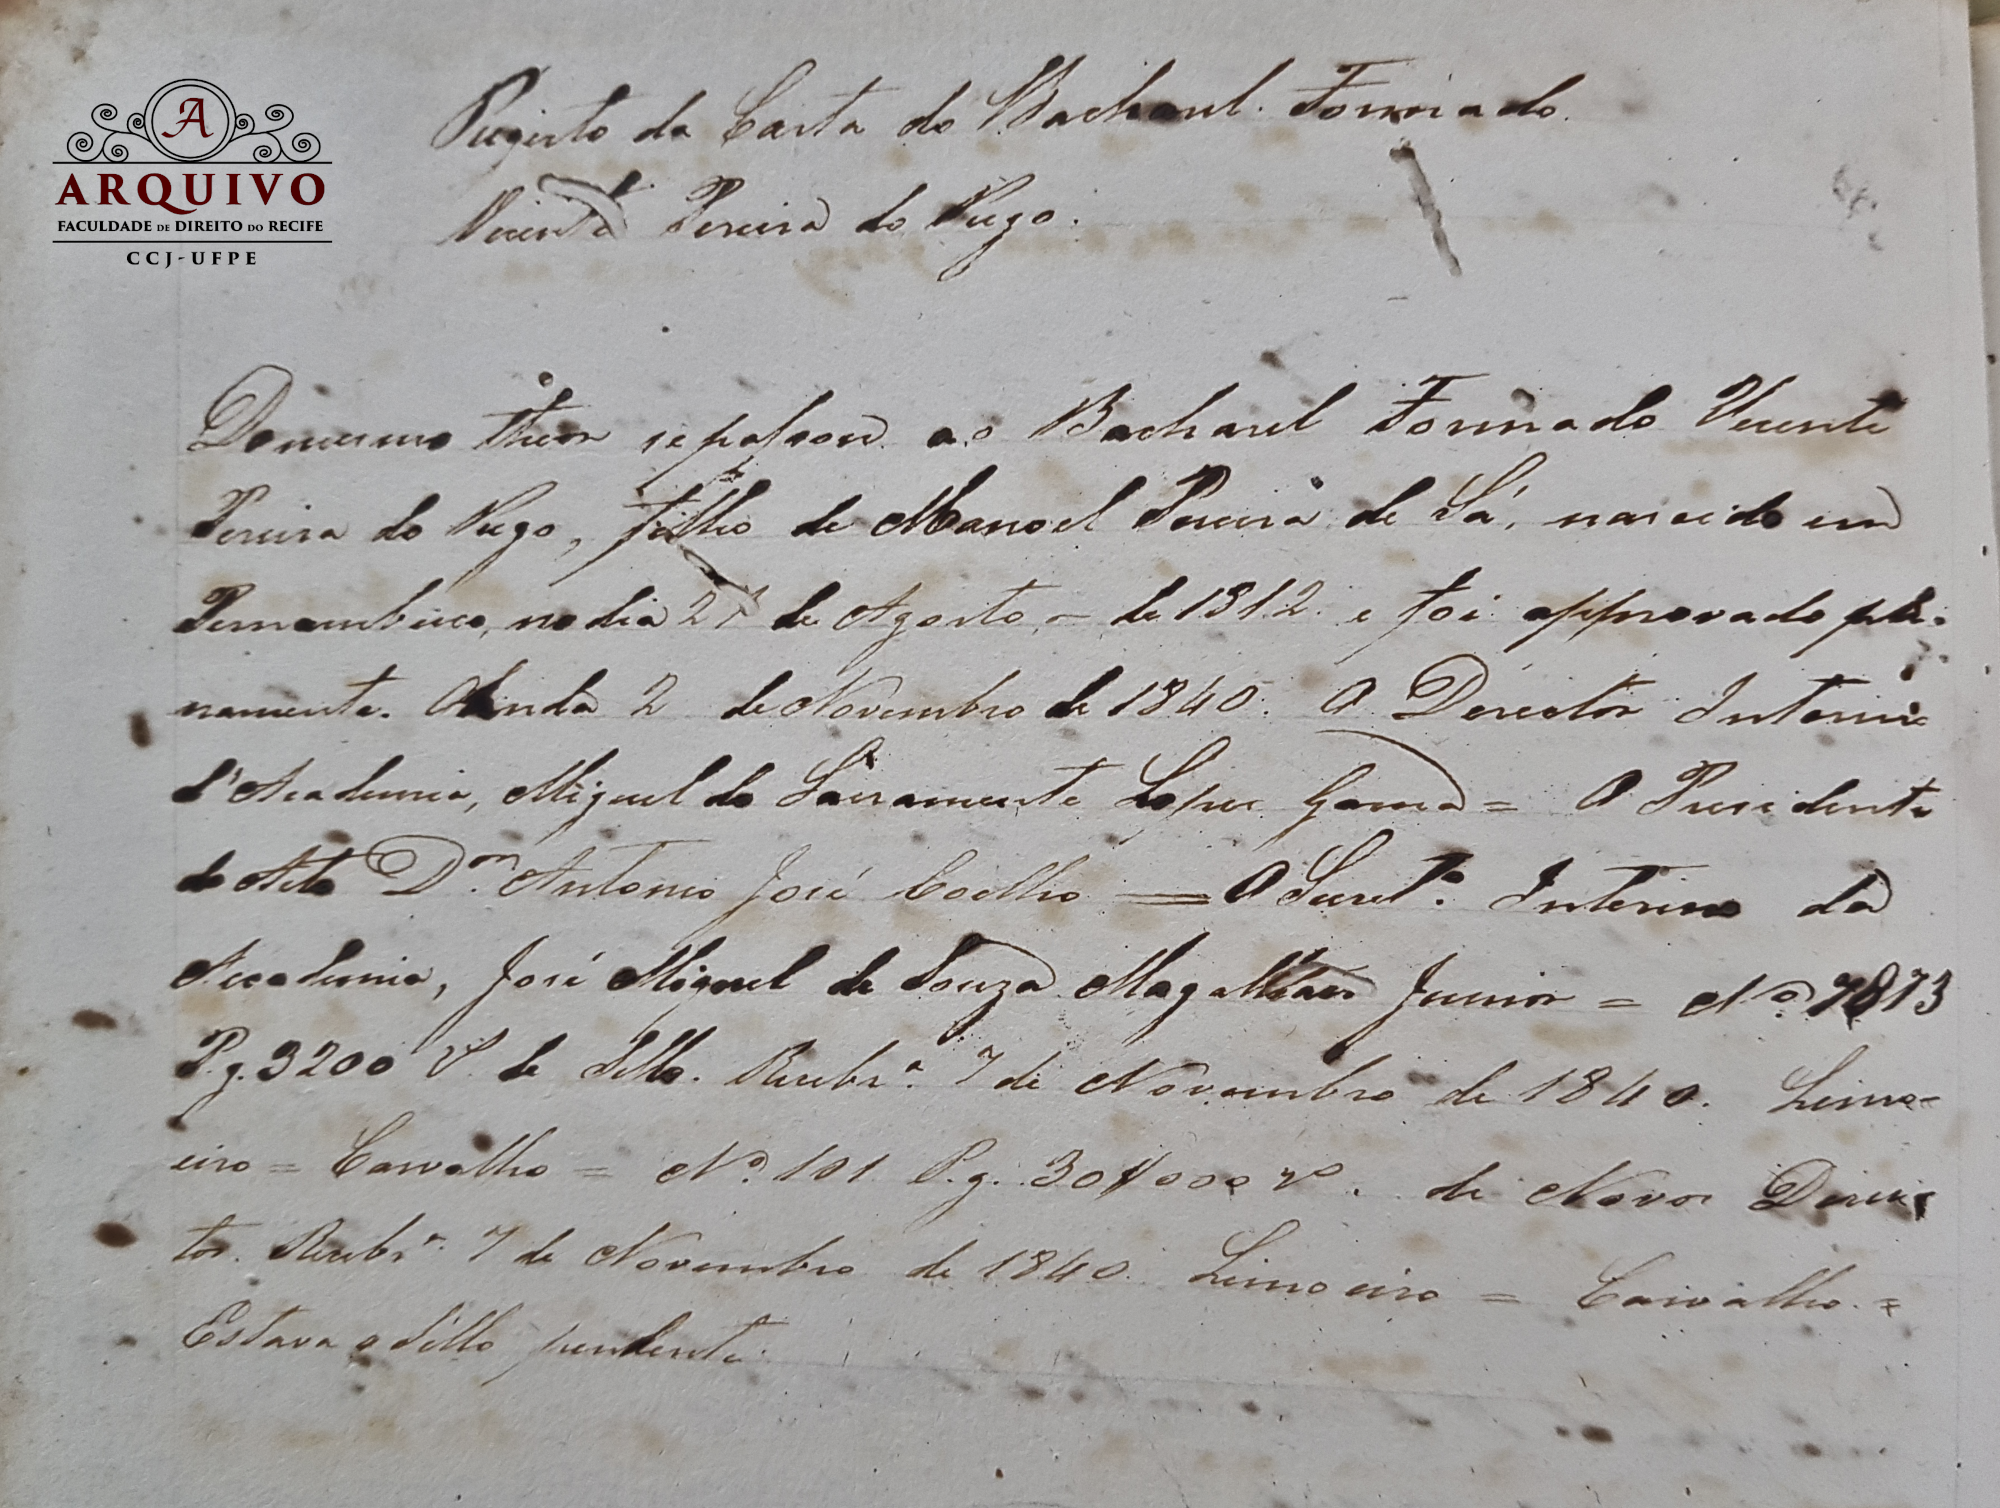 A
ARQUIVO
FACULDADE DE DIREITO DO RECIFE
CCJ-UFPE
Registo da Carta do Bacharel Formado
Vicente Pereira do Rego.
Do mesmo theor se passou ao Bacharel Formado Vicente
Pereira do Rego, filho de Manoel Pereira de Sá, nascido em
Pernambuco, no dia 2 de Agosto de 1812 e foi approvado ple-
namente. Olinda 2 de Novembro de 1840. O Director Interino
d'Academia, Miguel do Sacramento Lopes Gama = O Presidente
do Acto Dor. Antonio José Coelho = O Secret.o Interino da
Academia, José Miguel de Souza Magalhães Junior = No. 7873
Pg. 3200 rs. de Sello. Recebr.a 7 de Novembro de 1840. Limo-
eiro = Carvalho = No. 101 Pg. 30$000 rs. de Novos Direi-
tos. Recebr.a 7 de Novembro de 1840. Limoeiro = Carvalho. =
Estava o Sello pendente.